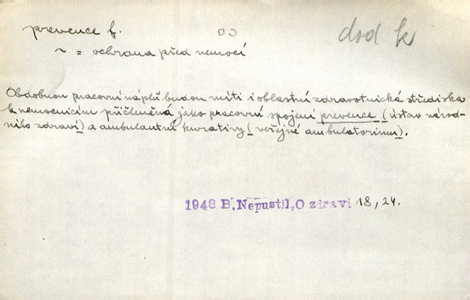 prevence f. dod k
~ = ochrana před nemocí
Obdobnou pracovní náplň budou míti i oblastní zdravotnická střediska
k nemocnicím přičleněná jako pracovní spojení prevence (ústav národ-
ního zdraví) a ambulantní kurativy (veřejné ambulatorium).
1948 B. Nepustil, O zdraví 18, 24.